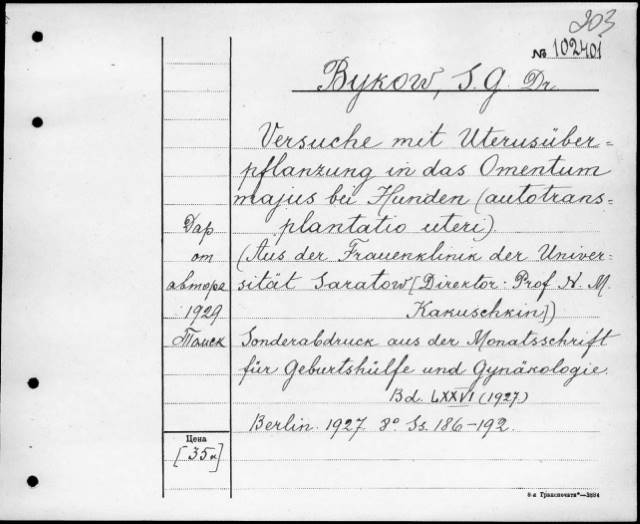 203
№ 102401
Bykow, S. G. Dr.
Versuche mit Uterusüber=
pflanzung in das Omentum
majus bei Hunden (autotrans=
plantatio uteri).
(Aus der Frauenklinik der Univer=
sität Saratow [Direktor: Prof N. M.
Kakuschkin])
Sonderabdruck aus der Monatsschrift
für Geburtshülfe und Gynäkologie.
Bd. LXXVI (1927)
Berlin. 1927. 8° Ss. 186-192.
Дар
от
автора
1929
Томск
Цена
[35к]
8-я Транспечати"—3894